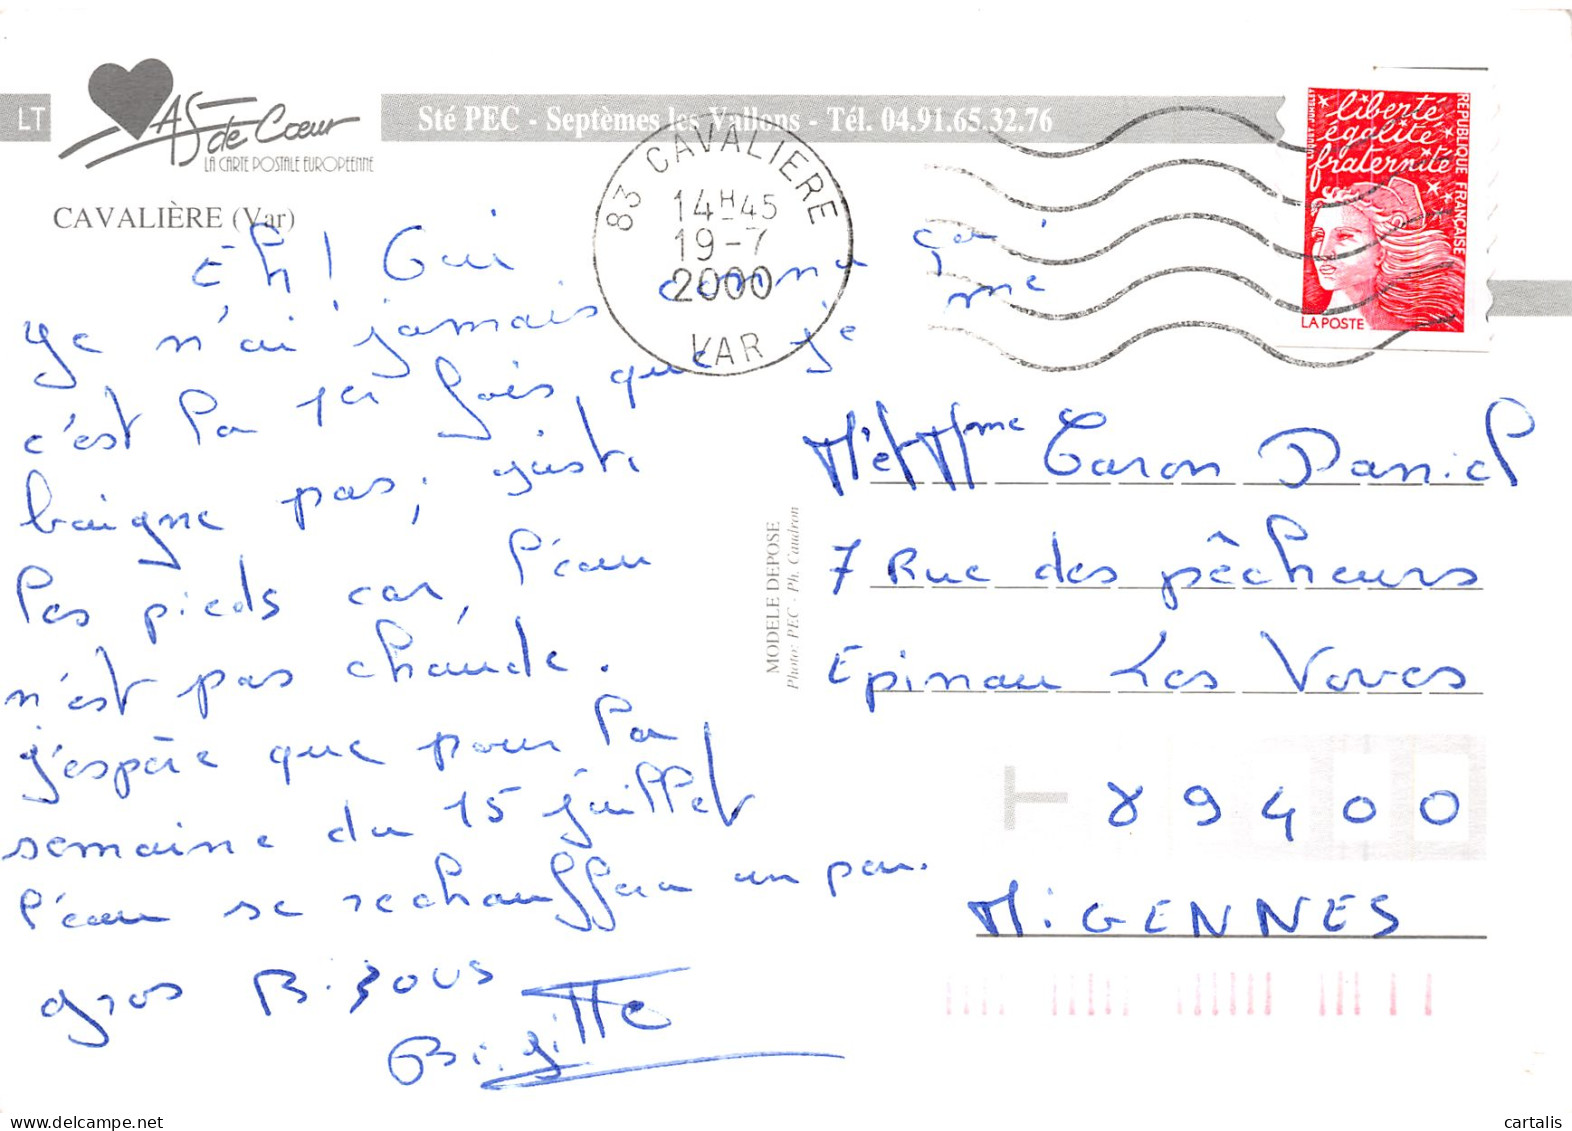 LT
AS de Cœur
LA CARTE POSTALE EUROPEENNE
Sté PEC - Septèmes les Vallons - Tél. 04.91.65.32.76
CAVALIÈRE (Var)
83 CAVALIERE
14H45
19-7
2000
VAR
liberté
égalité
fraternité
REPUBLIQUE FRANÇAISE
LA POSTE
Eh! Oui
Je n'ai jamais connu ça!
c'est la 1er fois que je me
baigne pas, juste
les pieds car, l'eau
n'est pas chaude.
j'espère que pour la
semaine du 15 juillet
l'eau se rechauffera un peu.
gros Bisous
Brigitte
MODELE DEPOSE
Photo: PEC - Ph. Caudron
M et Mme Caron Daniel
7 Rue des pêcheurs
Epineau Les Voves
89400
MiGENNES
cartalis
delcampe.net